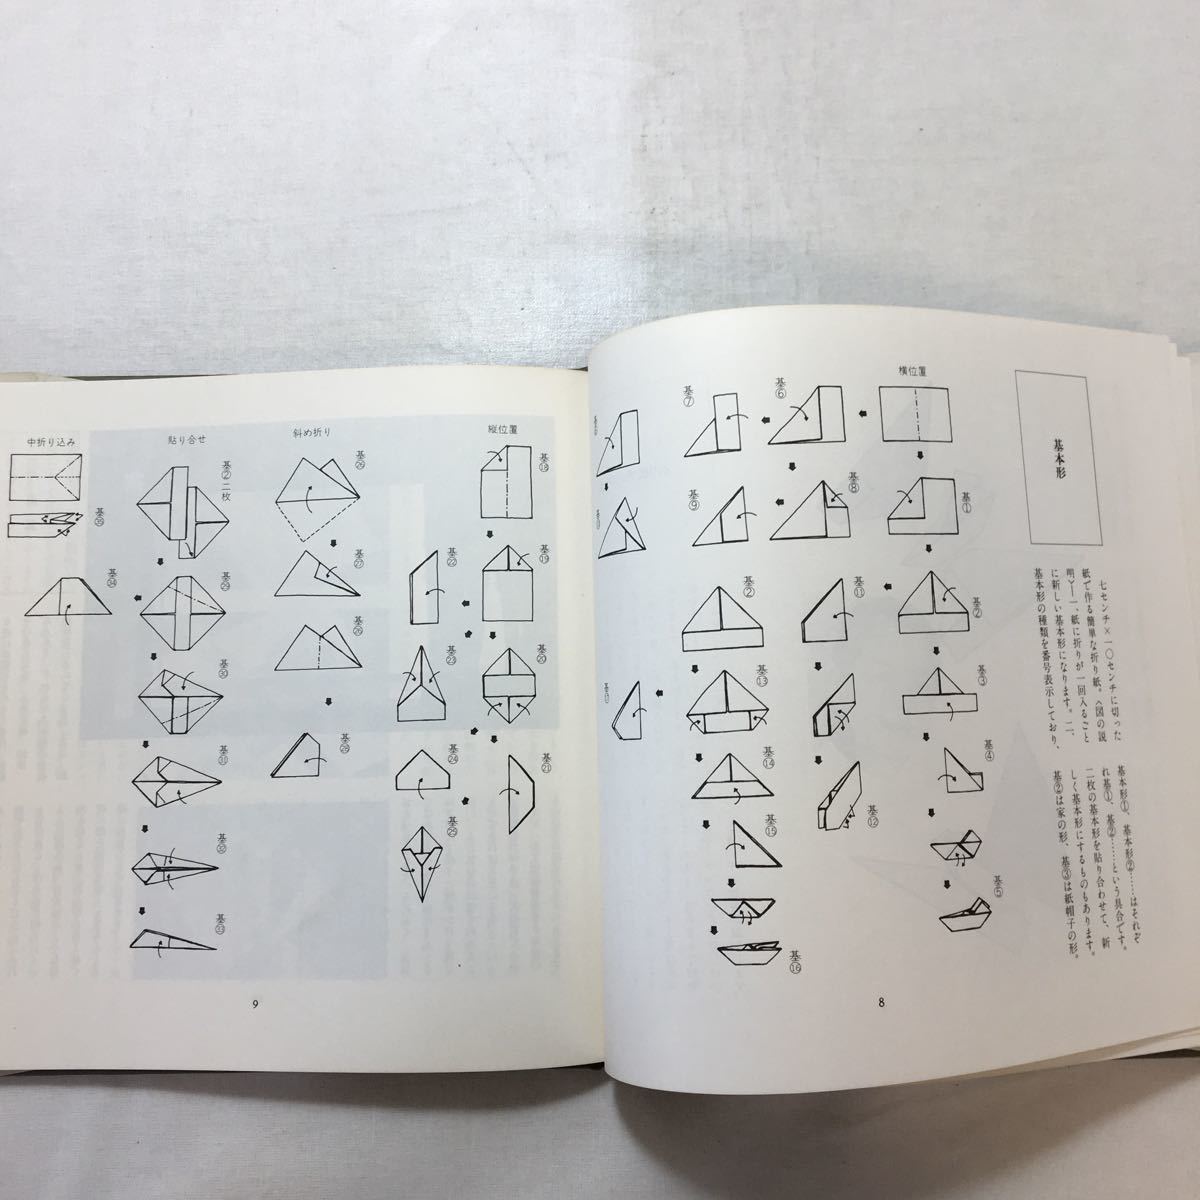 基本形
七センチ×一〇センチに切った
紙で作る簡単な折り紙。〈図の説
明〉一、紙に折りが一回入るごと
に新しい基本形になります。二、
基本形の種類を番号表示しており、
基本形①、基本形②……はそれぞ
れ基①、基②……という具合です。
二枚の基本形を貼り合わせて、新
しく基本形にするものもあります。
基②は家の形、基③は紙帽子の形。
横位置
基①
基②
基③
基④
基⑤
基⑥
基⑧
基⑪
基⑫
基⑦
基⑨
基②
基⑬
基⑭
基⑮
基⑯
8
縦位置
基⑱
基⑲
基⑳
基㉑
基㉒
基㉓
基㉔
基㉕
斜め折り
基㉖
基㉗
基㉖
基㉘
貼り合せ
基②二枚
基㉙
基㉚
基㉛
基㉜
基㉝
中折り込み
基㉟
基㉞
9